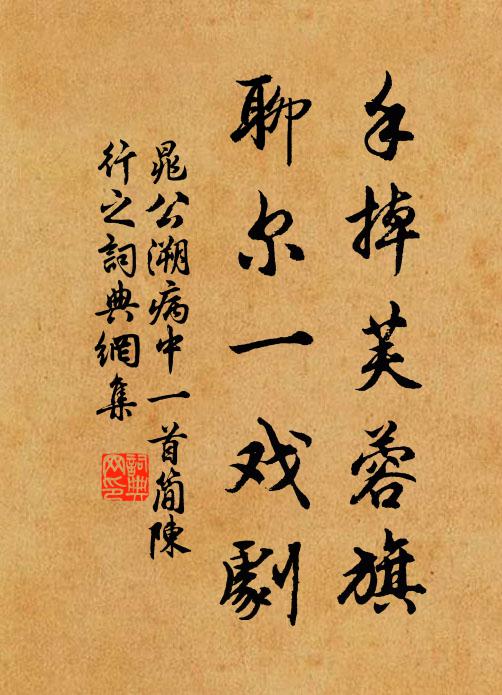 手掉芙蓉旗
聊尔一戏劇
晁公溯病中一首简陳
行之詞典網集
詞典
网印